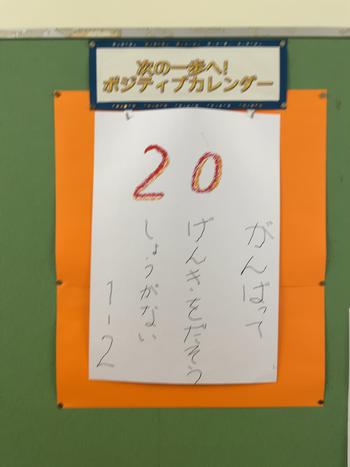 次の一歩へ!
ポジティブカレンダー
20
がんばって
げんきをだそう
しょうがない
1-2